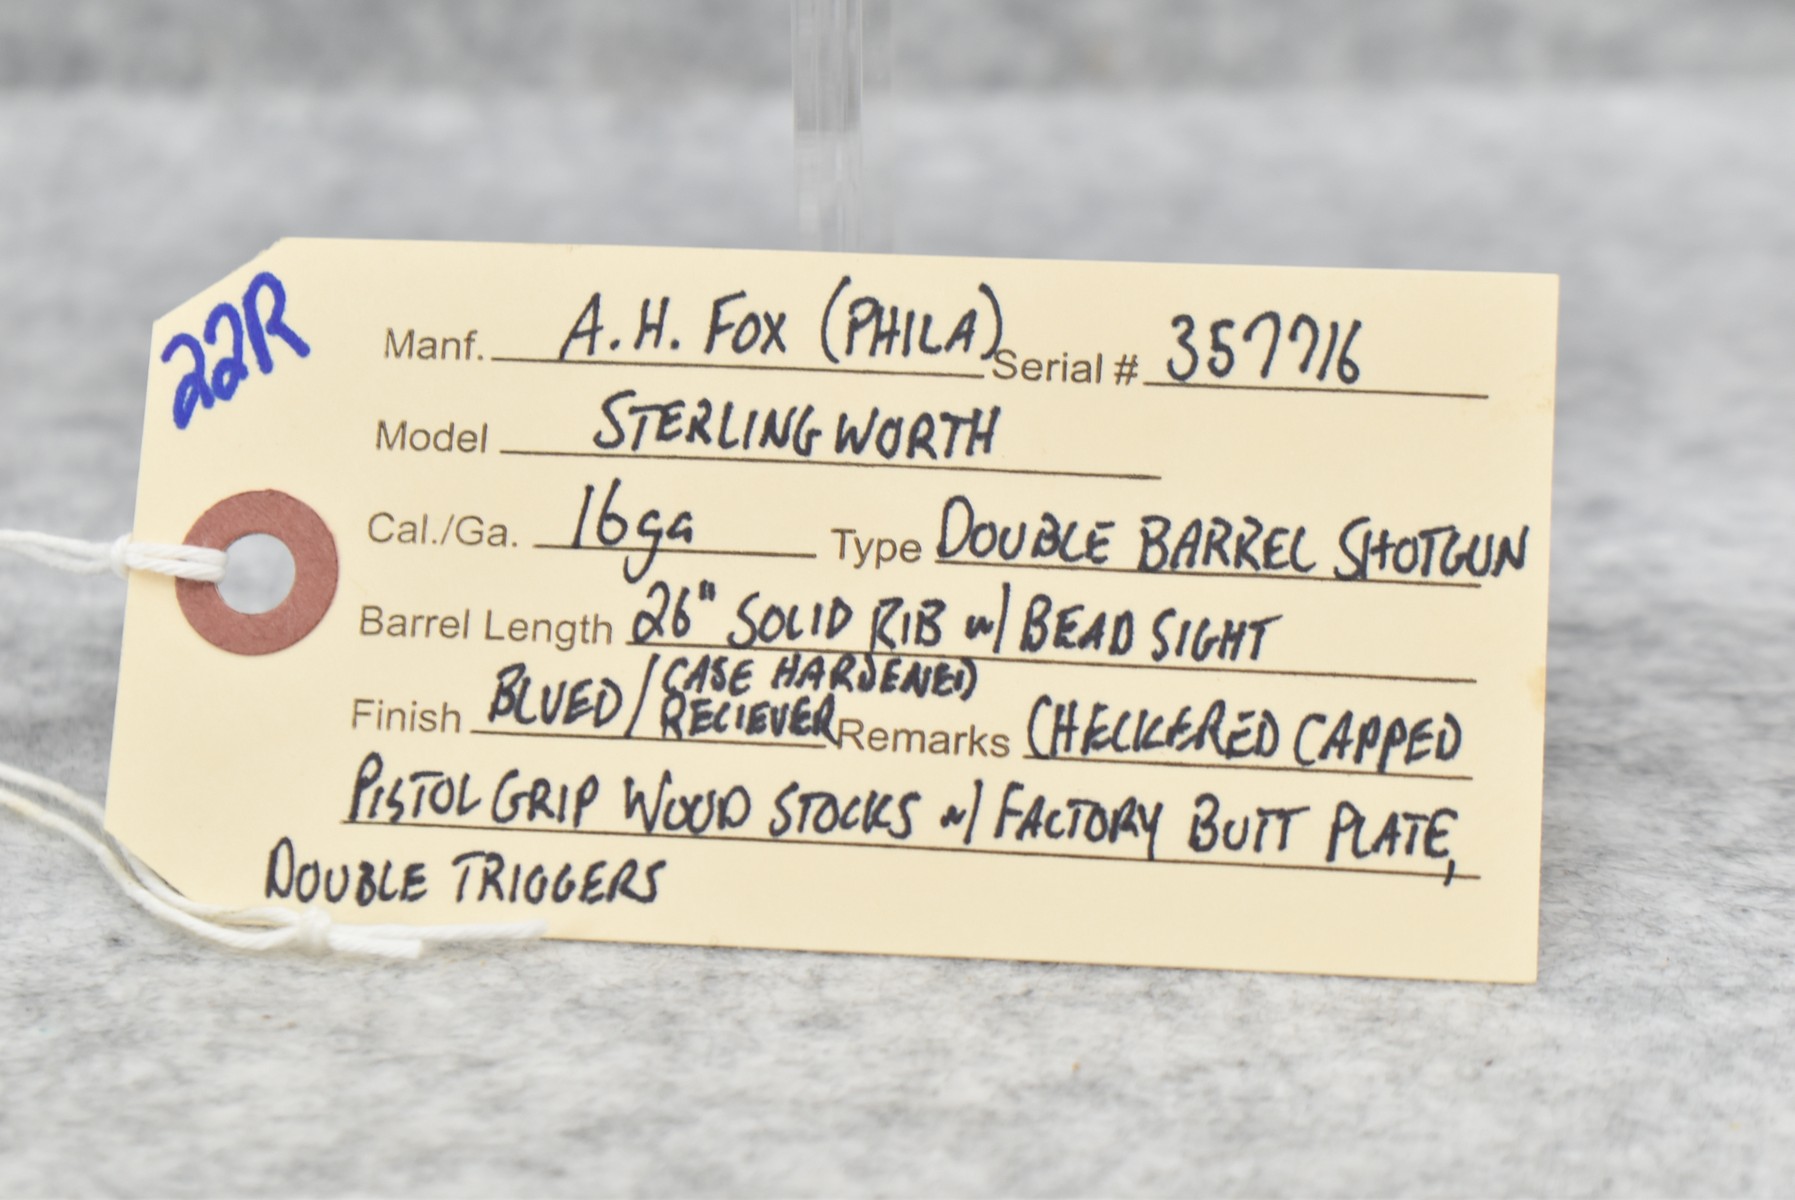 22R
Manf. A.H. FOX (PHILA) Serial # 357716
Model STERLINGWORTH
Cal./Ga. 16ga Type DOUBLE BARREL SHOTGUN
Barrel Length 26" SOLID RIB w/ BEAD SIGHT
Finish BLUED / CASE HARDENED
RECIEVER Remarks CHECKERED CAPPED
PISTOL GRIP WOOD STOCKS w/ FACTORY BUTT PLATE,
DOUBLE TRIGGERS